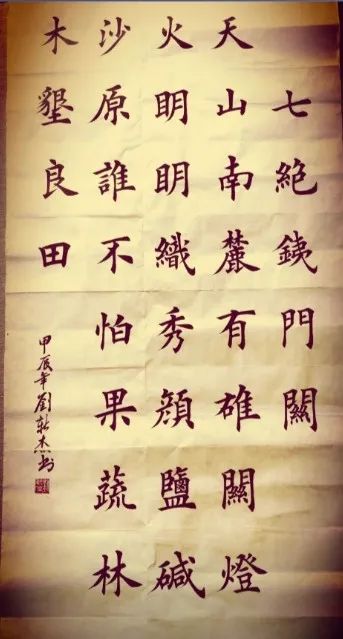 七絕銕門關
天山南麓有雄關燈
火明明織秀顏鹽碱
沙原誰不怕果蔬林
木墾良田
甲辰年劉杰书